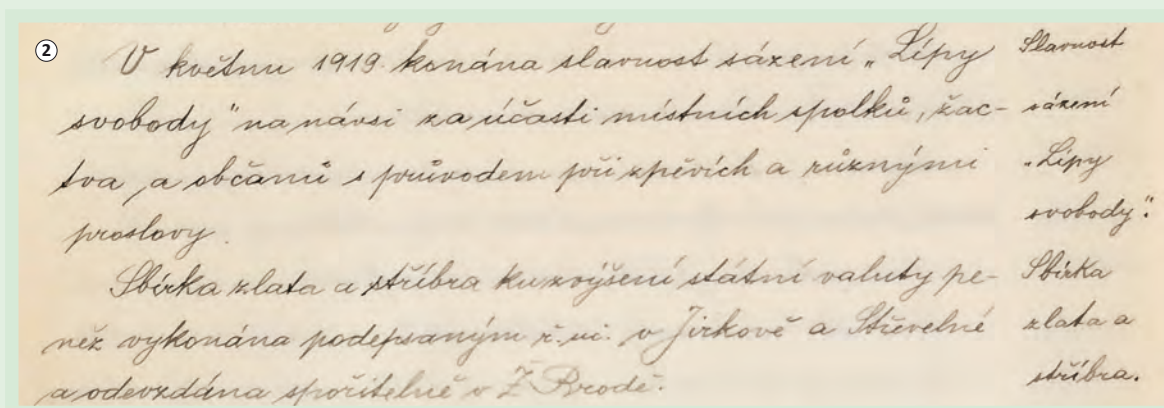 2
V květnu 1919. konána slavnost sázení „Lípy
svobody" na návsi za účasti místních spolků, žac-
tva, a občanů s průvodem při zpěvích a různými
proslovy.
Sbírka zlata a stříbra ku zvýšení státní valuty pe-
něz vykonána podepsaným ř. uč. v Jirkově a Střevelné
a odevzdána spořitelně v Ž. Brodě.
Slavnost
sázení
„Lípy
svobody".
Sbírka
zlata a
stříbra.